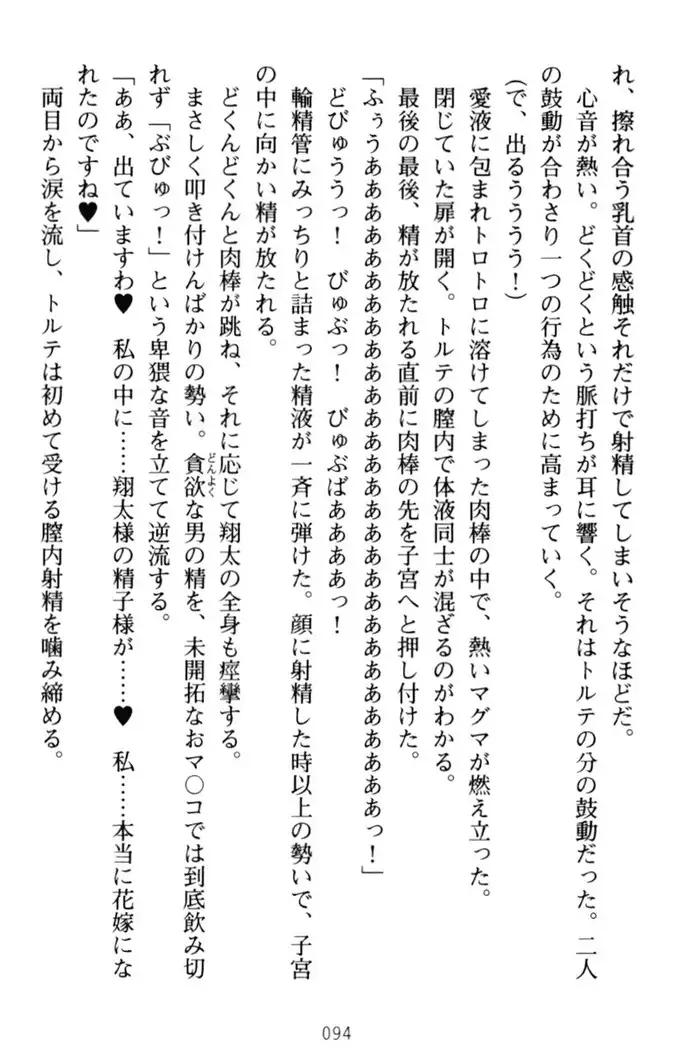 れ、擦れ合う乳首の感触それだけで射精してしまいそうなほどだ。
心音が熱い。どくどくという脈打ちが耳に響く。それはトルテの分の鼓動だった。二人
の鼓動が合わさり一つの行為のために高まっていく。
(で、出るうううう！)
愛液に包まれトロトロに溶けてしまった肉棒の中で、熱いマグマが燃え立った。
閉じていた扉が開く。トルテの膣内で体液同士が混ざるのがわかる。
最後の最後、精が放たれる直前に肉棒の先を子宮へと押し付けた。
「ふぅうあああああああああああああああああああああああああああああっ！」
どぴゅううっ！　びゅぶっ！　びゅぶばああああっ！
輸精管にみっちりと詰まった精液が一斉に弾けた。顔に射精した時以上の勢いで、子宮
の中に向かい精が放たれる。
どくんどくんと肉棒が跳ね、それに応じて翔太の全身も痙攣する。
まさしく叩き付けんばかりの勢い。貪欲な男の精を、未開拓なおマ○コでは到底飲み切
れず「ぶびゅっ！」という卑猥な音を立てて逆流する。
「ああ、出ていますわ♥　私の中に……翔太様の精子様が……♥　私……本当に花嫁にな
れたのですね♥」
両目から涙を流し、トルテは初めて受ける膣内射精を噛み締める。
094